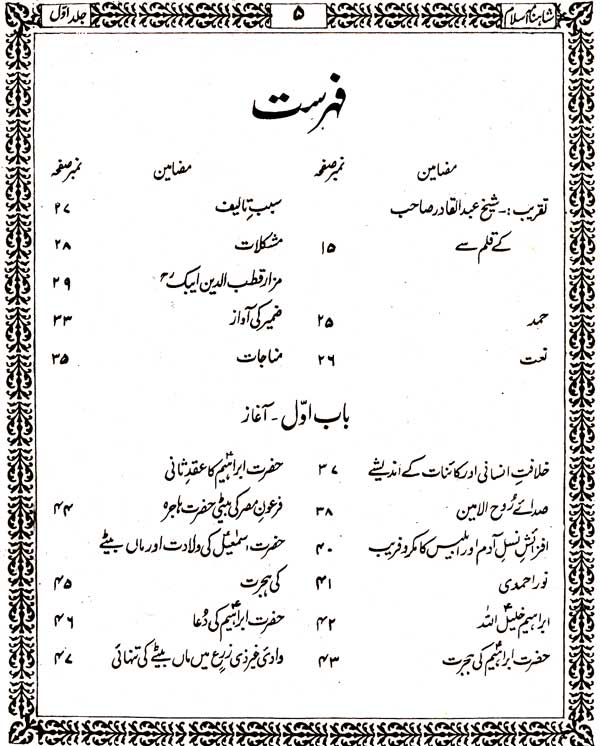 شاہنامۂ اسلام ۵ جلد اوّل
فہرست
مضامین نمبر صفحہ مضامین نمبر صفحہ
تقریب :۔ شیخ عبدالقادر صاحب سببِ تالیف ۲۷
کے قلم سے ۱۵ مشکلات ۲۸
مزار قطب الدین ایبکؒ ۲۹
حمد ۲۵ ضمیر کی آواز ۳۳
نعت ۲۶ مناجات ۳۵
باب اوّل - آغاز
خلافتِ انسانی اور کائنات کے اندیشے ۳۷ حضرت ابراہیمؑ کا عقدِ ثانی
صدائے رُوح الامین ۳۸ فرعونِ مصر کی بیٹی حضرت ہاجرہ ۴۴
افزائشِ نسلِ آدم اور ابلیس کا مکر و فریب ۴۰ حضرت اسمٰعیلؑ کی ولادت اور ماں بیٹے
نورِ احمدی ۴۱ کی ہجرت ۴۵
ابراہیم خلیل اللہؑ ۴۲ حضرت ابراہیمؑ کی دُعا ۴۶
حضرت ابراہیمؑ کی ہجرت ۴۳ وادیٔ غیر ذی زرع میں ماں بیٹے کی تنہائی ۴۷